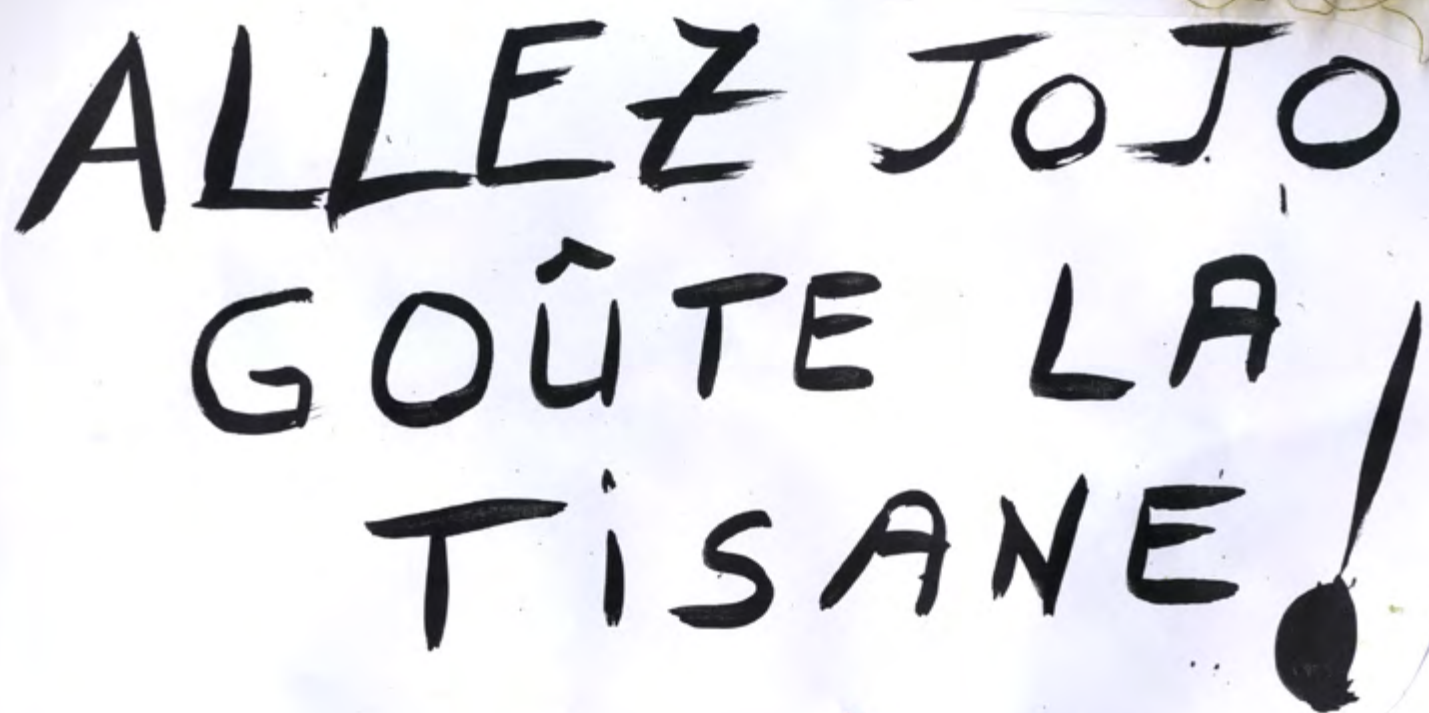 ALLEZ JoJo
GOÛTE LA
TiSANE!